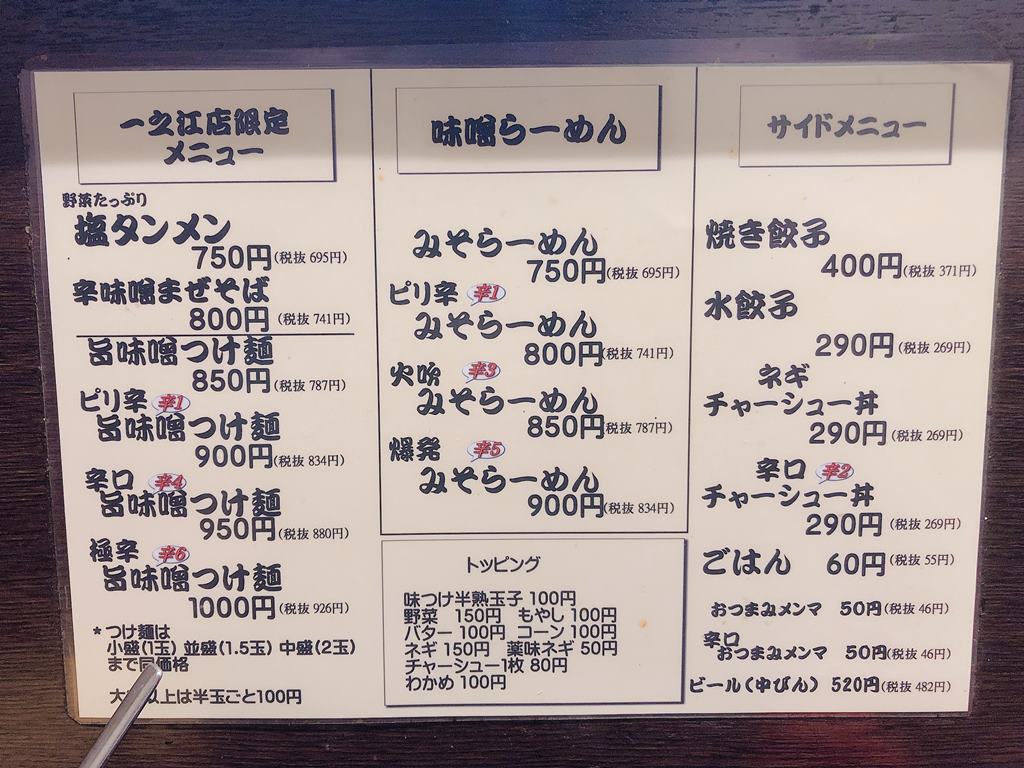 一之江店限定
メニュー
野菜たっぷり
塩タンメン
750円(税抜 695円)
辛味噌まぜそば
800円 (税抜 741円)
旨味噌つけ麺
850円(税抜 787円)
ピリ辛 辛1
旨味噌つけ麺
900円(税抜 834円)
辛口 辛4
旨味噌つけ麺
950円(税抜 880円)
極辛 辛6
旨味噌つけ麺
1000円(税抜 926円)
*つけ麺は
小盛(1玉) 並盛(1.5玉) 中盛(2玉)
まで同価格
大 以上は半玉ごと100円
味噌らーめん
みそらーめん
750円(税抜 695円)
ピリ辛 辛1
みそらーめん
800円(税抜 741円)
火吹 辛3
みそらーめん
850円(税抜 787円)
爆発 辛5
みそらーめん
900円(税抜 834円)
トッピング
味つけ半熟玉子 100円
野菜 150円 もやし 100円
バター 100円 コーン 100円
ネギ 150円 薬味ネギ 50円
チャーシュー1枚 80円
わかめ 100円
サイドメニュー
焼き餃子
400円(税抜 371円)
水餃子
290円(税抜 269円)
ネギ
チャーシュー丼
290円(税抜 269円)
辛口 辛2
チャーシュー丼
290円 (税抜 269円)
ごはん 60円(税抜 55円)
おつまみメンマ 50円(税抜 46円)
辛口
おつまみメンマ 50円(税抜 46円)
ビール(中びん) 520円(税抜 482円)